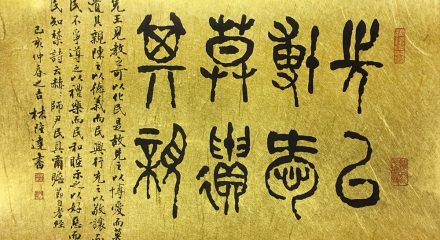 先以
博愛
莫遺
其親
先王見教之可以化民是故先之以博愛而莫
遺其親陳之以德義而民興行先之以敬讓而
民不爭導之以禮樂而民和睦示之以好惡而
民知禁詩云赫赫師尹民具爾瞻 節自孝經
己亥仲春之吉 林隆達書